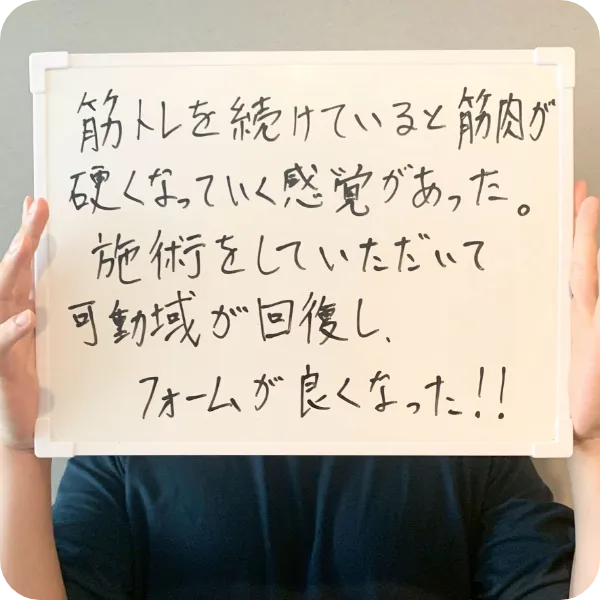 筋トレを続けていると筋肉が
硬くなっていく感覚があった。
施術をしていただいて
可動域が回復し、
フォームが良くなった!!